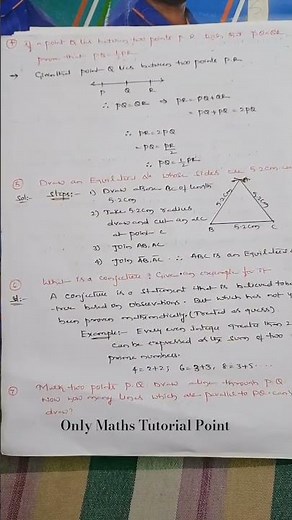 ④ If a point Q lies between two points P, R such that PQ=QR
prove that PQ=½PR.
→ Given that point Q lies between two points P,R
P Q R
∴ PQ = QR ⇒ PR = PQ+QR
= PQ+PQ = 2PQ
∴ PR = 2PQ
= PQ = PR/2
∴ PQ = ½PR
⑤ Draw an Equilateral Δle whose sides are 5.2cm
Sol:- Steps:- 1) Draw a line BC of length
5.2cm
2) Take 5.2cm radius
draw and cut an arc
at point C
3) Join AB, AC
4) Join AB, AC ∴ ABC is an Equilateral
A
5.2cm 5.2cm
B 5.2cm C
⑥ What is a conjecture? Given an example for it
Sol:- A conjecture is a statement that is believed to be
true based on observations. But which has not
been proven mathematically (Treated as guess)
Example:- Every even integer greater than 2
can be expressed as the sum of two
prime numbers.
4=2+2; 6=3+3, 8=3+5....
⑦ Mark two points P,Q. Draw a line through P,Q.
Now how many lines which are parallel to PQ can
draw?
Only Maths Tutorial Point